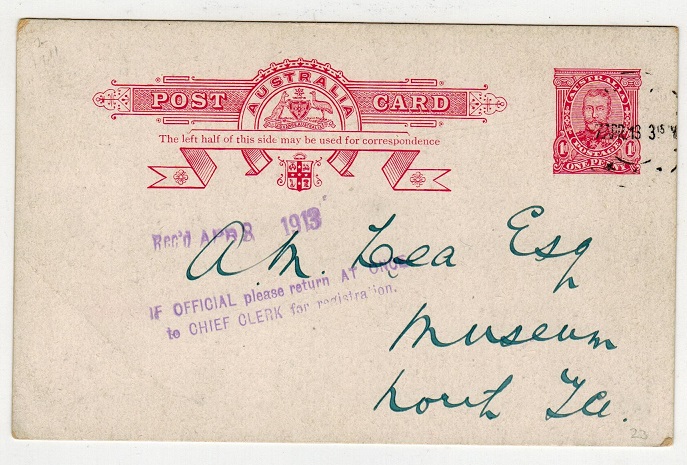 AUSTRALIA
POST CARD
The left half of this side may be used for correspondence
AUSTRALIA
POSTAGE
1D 1D
ONE PENNY
13 3 15
Rec'd APR 8 1913
A. M. Lea Esq
IF OFFICIAL please return AT ONCE
to CHIEF CLERK for registration.
Museum
North Tce.
23